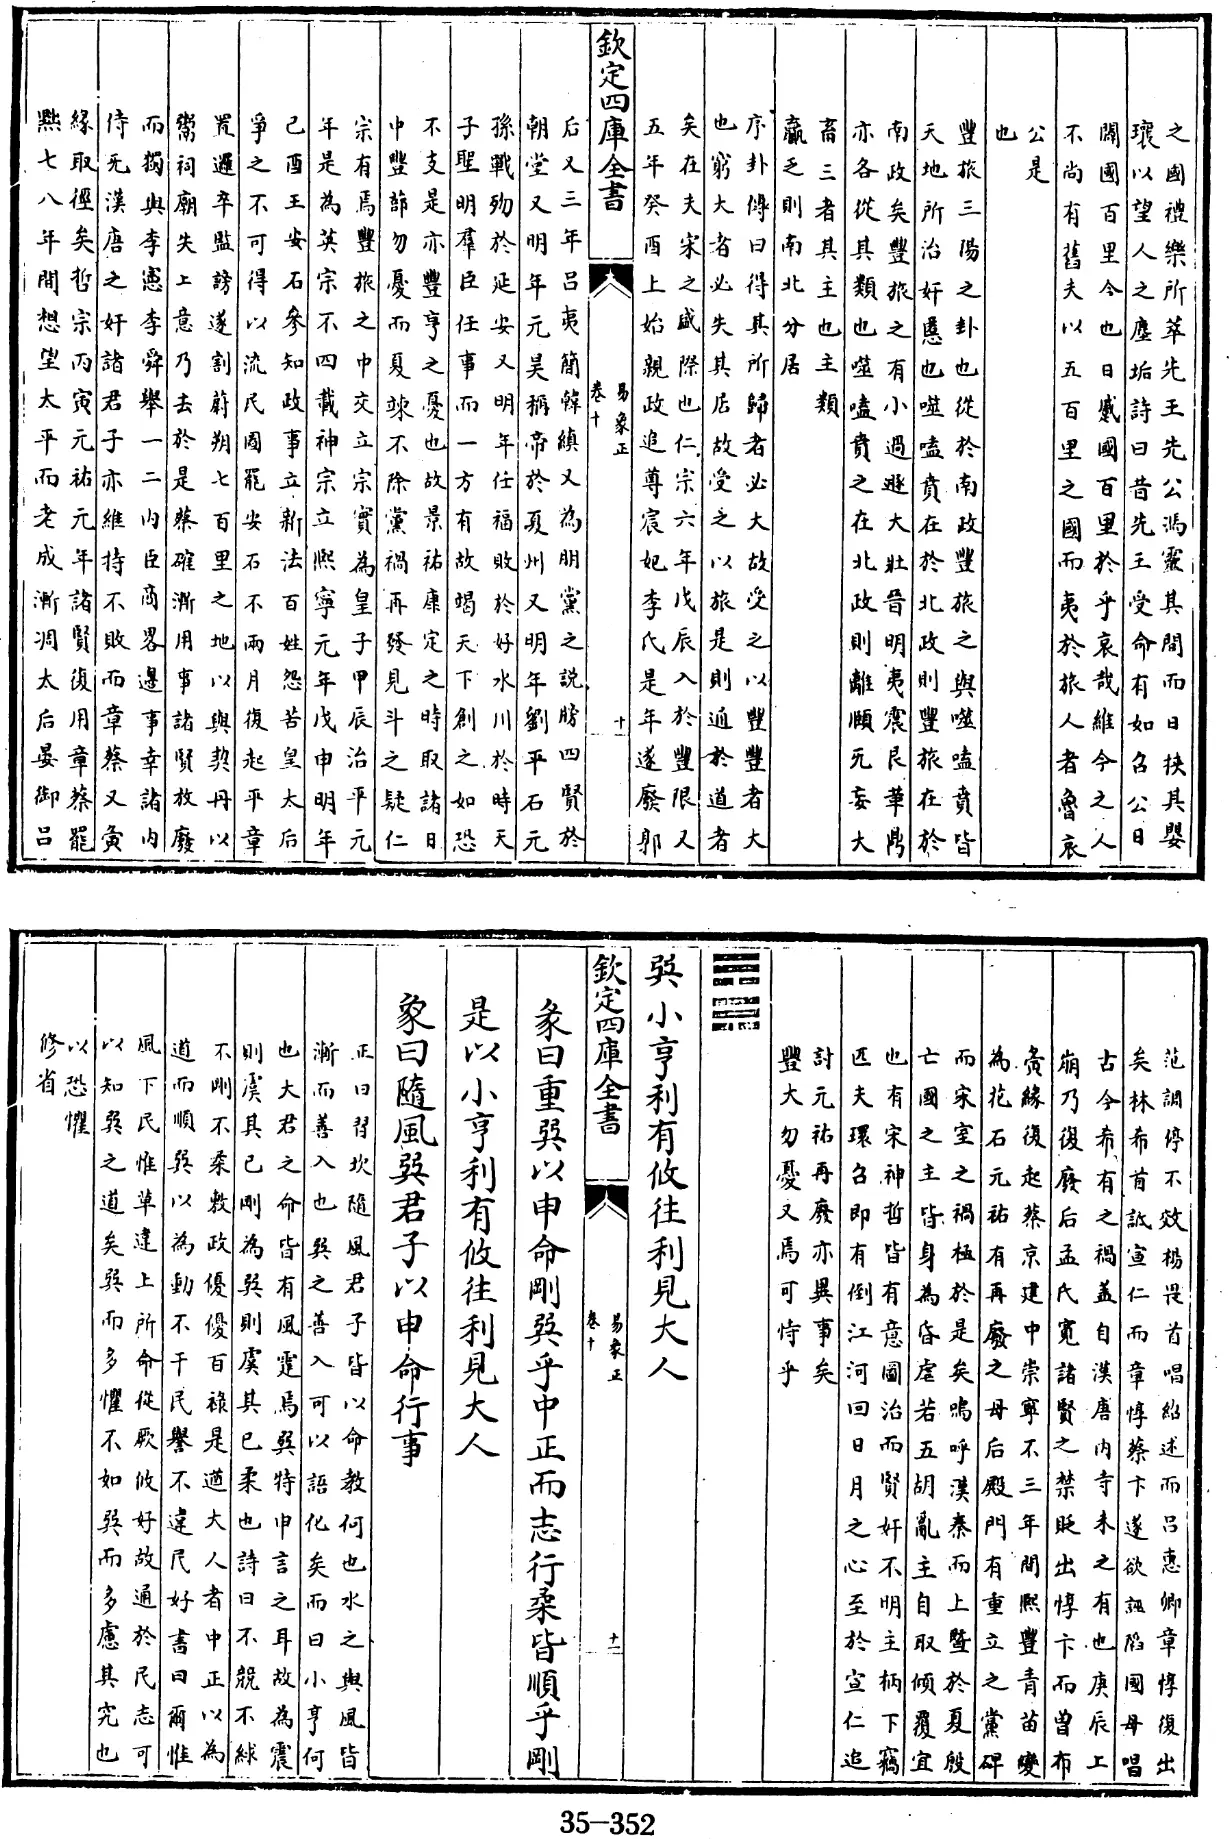 之國禮樂所萃先王先公馮靈其間而日挾其嬰
瓌以望人之塵垢詩曰昔先王受命有如召公日
闢國百里今也日蹙國百里於乎哀哉維今之人
不尚有舊夫以五百里之國而夷於旅人者魯哀
公是
也
豐旅三陽之卦也從於南政豐旅之與噬嗑賁皆
天地所治奸慝也噬嗑賁在於北政則豐旅在於
南政矣豐旅之有小過遯大壯晉明夷震艮革鼎
亦各從其類也噬嗑賁之在北政則離頤无妄大
畜三者其主也主類
贏乏則南北分居
序卦傳曰得其所歸者必大故受之以豐豐者大
也窮大者必失其居故受之以旅是則逌於道者
矣在夫宋之盛際也仁宗六年戊辰入於豐限又
五年癸酉上始親政追尊宸妃李氏是年遂廢郭
欽定四庫全書
易象正
卷十
十
后又三年呂夷簡韓縝又為朋黨之說牓四賢於
朝堂又明年元昊稱帝於夏州又明年劉平石元
孫戰歿於延安又明年任福敗於好水川於時天
子聖明羣臣任事而一方有故竭天下創之如恐
不支是亦豐亨之憂也故景祐康定之時取諸日
中豐蔀勿憂而夏竦不除黨禍再發見斗之疑仁
宗有焉豐旅之中交立宗實為皇子甲辰治平元
年是為英宗不四載神宗立熙寧元年戊申明年
己酉王安石參知政事立新法百姓怨苦皇太后
爭之不可得以流民圖罷安石不兩月復起平章
置邏卒監謗遂割蔚朔七百里之地以與契丹以
鬻祠廟失上意乃去於是蔡確漸用事諸賢放廢
而獨與李憲李舜舉一二內臣商畧邊事幸諸內
侍无漢唐之奸諸君子亦維持不敗而章蔡又夤
緣取徑矣哲宗丙寅元祐元年諸賢復用章蔡罷
黜七八年間想望太平而老成漸凋太后晏御呂
范調停不效楊畏首唱紹述而呂惠卿章惇復出
矣林希首詆宣仁而章惇蔡卞遂欲誣陷國母唱
古今希有之禍葢自漢唐內寺未之有也庚辰上
崩乃復廢后孟氏寬諸賢之禁貶出惇卞而曾布
夤緣復起蔡京建中崇寧不三年間熙豐青苗變
為花石元祐有再廢之母后殿門有重立之黨碑
而宋室之禍極於是矣嗚呼漢秦而上暨於夏殷
亡國之主皆身為昏虐若五胡亂主自取傾覆宜
也有宋神哲皆有意圖治而賢奸不明主柄下竊
匹夫環召即有倒江河回日月之心至於宣仁追
討元祐再廢亦異事矣
豐大勿憂又焉可恃乎
巽小亨利有攸往利見大人
欽定四庫全書
易象正
卷十
十一
彖曰重巽以申命剛巽乎中正而志行柔皆順乎剛
是以小亨利有攸往利見大人
象曰隨風巽君子以申命行事
正曰習坎隨風君子皆以命教何也水之與風皆
漸而善入也巽之善入可以語化矣而曰小亨何
也大君之命皆有風霆焉巽特申言之耳故為震
則虞其已剛為巽則虞其已柔也詩曰不競不絿
不剛不柔敷政優優百祿是遒大人者中正以為
道而順巽以為動不干民譽不違民好書曰爾惟
風下民惟草違上所命從厥攸好故通於民志可
以知巽之道矣巽而多懼不如巽而多慮其究也
以恐懼
修省
35-352